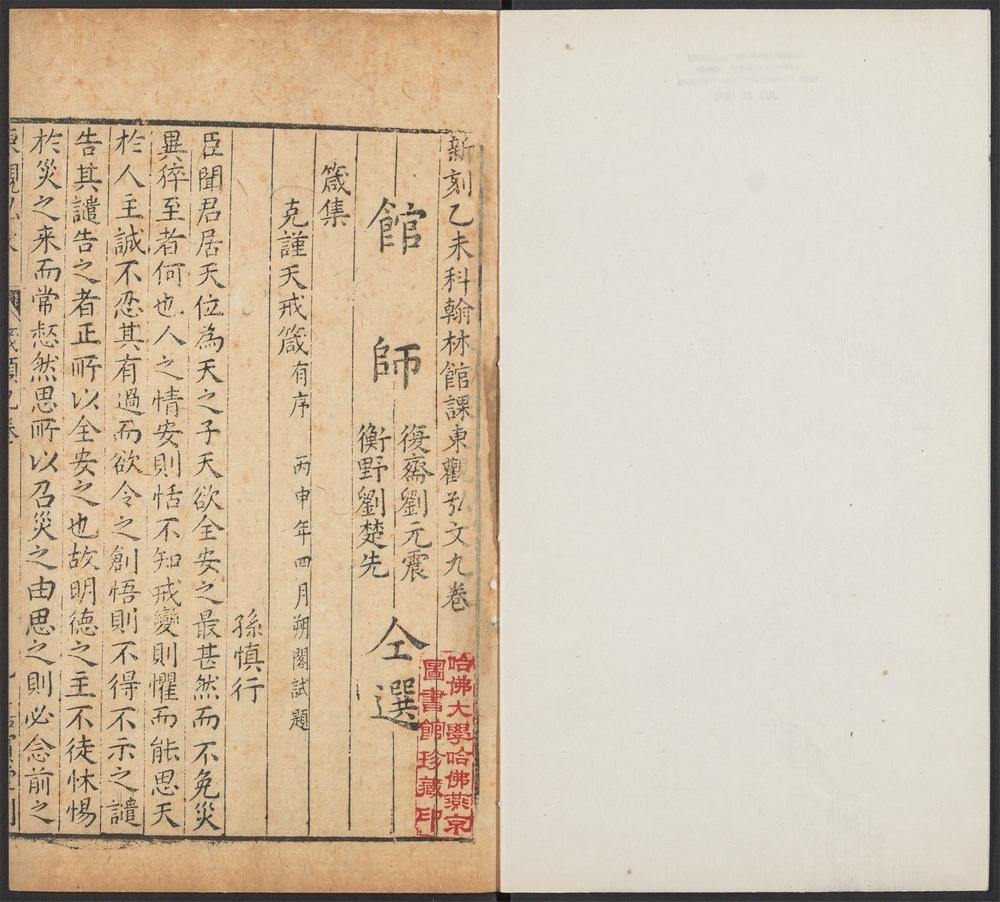 新刻乙未科翰林館課東觀弘文九卷
館師
復齋劉元震
衡野劉楚先
仝選
箴集
克謹天戒箴有序 丙申年四月朔閣試題
孫慎行
臣聞君居天位為天之子天欲全安之最甚然而不免災
異猝至者何也人之情安則恬不知戒變則懼而能思天
於人主誠不忍其有過而欲令之創悟則不得不示之譴
告其譴告之者正所以全安之也故明德之主不徒怵惕
於災之来而常愸然思所以召災之由思之則必念前之
哈佛大學哈佛燕京
圖書館珍藏印